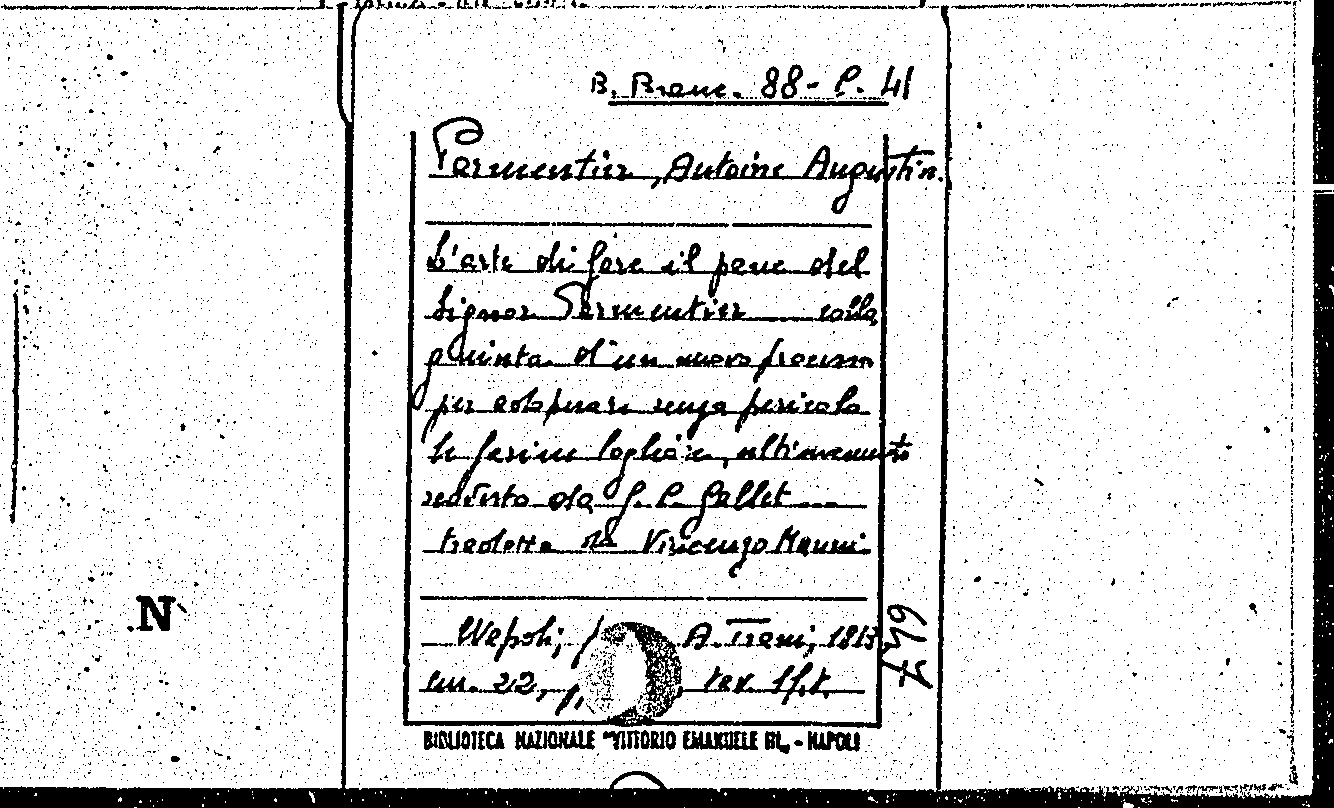 B. Branc. 88-C. 41
Parmentier, Antoine Augustin.
L'arte di fare il pane del
Signor Parmentier colla
giunta d'un nuovo processo
per adoperare senza pericolo
le farine logliate, ultimamente
scoverto da G. C. Gallet
tradotta da Vincenzo Mauri
Napoli, A. Trani, 1813
cm. 22, p. tav. 1 f.t.
649
N
BIBLIOTECA NAZIONALE "VITTORIO EMANUELE III" - NAPOLI